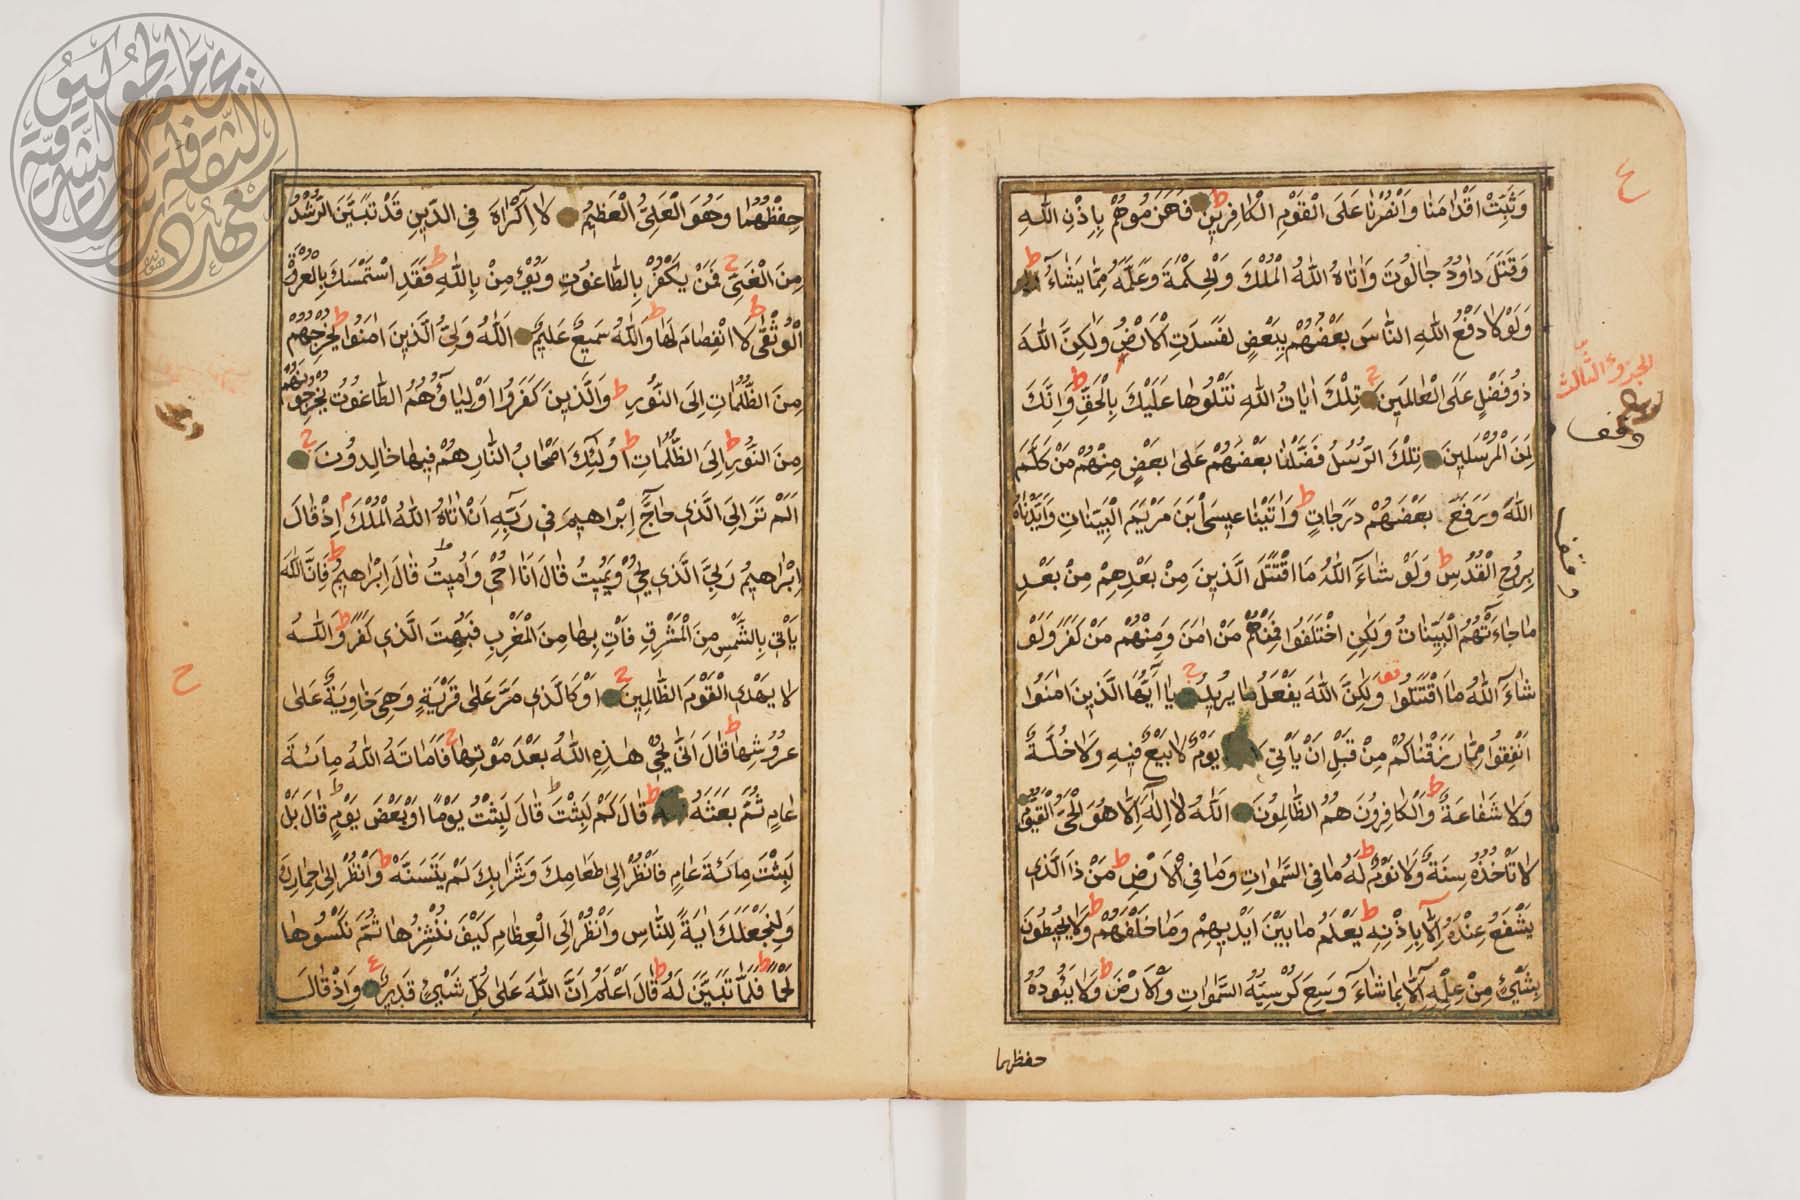 وَثَبِّتْ اَقْدَامَنَا وَانْصُرْنَا عَلَى الْقَوْمِ الْكَافِرِينَ فَهَزَمُوهُمْ بِاِذْنِ اللّٰهِ
وَقَتَلَ دَاوُدُ جَالُوتَ وَاٰتَاهُ اللّٰهُ الْمُلْكَ وَالْحِكْمَةَ وَعَلَّمَهُ مِمَّا يَشَاءُ
وَلَوْلَا دَفْعُ اللّٰهِ النَّاسَ بَعْضَهُمْ بِبَعْضٍ لَفَسَدَتِ الْاَرْضُ وَلٰكِنَّ اللّٰهَ
ذُو فَضْلٍ عَلَى الْعَالَمِينَ تِلْكَ اٰيَاتُ اللّٰهِ نَتْلُوهَا عَلَيْكَ بِالْحَقِّ وَاِنَّكَ
لَمِنَ الْمُرْسَلِينَ تِلْكَ الرُّسُلُ فَضَّلْنَا بَعْضَهُمْ عَلٰى بَعْضٍ مِنْهُمْ مَنْ كَلَّمَ
اللّٰهُ وَرَفَعَ بَعْضَهُمْ دَرَجَاتٍ وَاٰتَيْنَا عِيسَى ابْنَ مَرْيَمَ الْبَيِّنَاتِ وَاَيَّدْنَاهُ
بِرُوحِ الْقُدُسِ وَلَوْ شَاءَ اللّٰهُ مَا اقْتَتَلَ الَّذِينَ مِنْ بَعْدِهِمْ مِنْ بَعْدِ
مَا جَاءَتْهُمُ الْبَيِّنَاتُ وَلٰكِنِ اخْتَلَفُوا فَمِنْهُمْ مَنْ اٰمَنَ وَمِنْهُمْ مَنْ كَفَرَ وَلَوْ
شَاءَ اللّٰهُ مَا اقْتَتَلُوا وَلٰكِنَّ اللّٰهَ يَفْعَلُ مَا يُرِيدُ يَا اَيُّهَا الَّذِينَ اٰمَنُوا
اَنْفِقُوا مِمَّا رَزَقْنَاكُمْ مِنْ قَبْلِ اَنْ يَاْتِيَ يَوْمٌ لَا بَيْعٌ فِيهِ وَلَا خُلَّةٌ
وَلَا شَفَاعَةٌ وَالْكَافِرُونَ هُمُ الظَّالِمُونَ اَللّٰهُ لَا اِلٰهَ اِلَّا هُوَ الْحَيُّ الْقَيُّومُ
لَا تَاْخُذُهُ سِنَةٌ وَلَا نَوْمٌ لَهُ مَا فِي السَّمٰوَاتِ وَمَا فِي الْاَرْضِ مَنْ ذَا الَّذِي
يَشْفَعُ عِنْدَهُ اِلَّا بِاِذْنِهِ يَعْلَمُ مَا بَيْنَ اَيْدِيهِمْ وَمَا خَلْفَهُمْ وَلَا يُحِيطُونَ
بِشَيْءٍ مِنْ عِلْمِهِ اِلَّا بِمَا شَاءَ وَسِعَ كُرْسِيُّهُ السَّمٰوَاتِ وَالْاَرْضَ وَلَا يَؤُدُهُ
حفظهما
الجزؤ الثالث
وقف
حِفْظُهُمَا وَهُوَ الْعَلِيُّ الْعَظِيمُ لَا اِكْرَاهَ فِي الدِّينِ قَدْ تَبَيَّنَ الرُّشْدُ
مِنَ الْغَيِّ فَمَنْ يَكْفُرْ بِالطَّاغُوتِ وَيُؤْمِنْ بِاللّٰهِ فَقَدِ اسْتَمْسَكَ بِالْعُرْوَةِ
الْوُثْقٰى لَا انْفِصَامَ لَهَا وَاللّٰهُ سَمِيعٌ عَلِيمٌ اَللّٰهُ وَلِيُّ الَّذِينَ اٰمَنُوا يُخْرِجُهُمْ
مِنَ الظُّلُمَاتِ اِلَى النُّورِ وَالَّذِينَ كَفَرُوا اَوْلِيَاؤُهُمُ الطَّاغُوتُ يُخْرِجُونَهُمْ
مِنَ النُّورِ اِلَى الظُّلُمَاتِ اُولٰئِكَ اَصْحَابُ النَّارِ هُمْ فِيهَا خَالِدُونَ
اَلَمْ تَرَ اِلَى الَّذِي حَاجَّ اِبْرَاهِيمَ فِي رَبِّهِ اَنْ اٰتَاهُ اللّٰهُ الْمُلْكَ اِذْ قَالَ
اِبْرَاهِيمُ رَبِّيَ الَّذِي يُحْيِي وَيُمِيتُ قَالَ اَنَا اُحْيِي وَاُمِيتُ قَالَ اِبْرَاهِيمُ فَاِنَّ اللّٰهَ
يَاْتِي بِالشَّمْسِ مِنَ الْمَشْرِقِ فَاْتِ بِهَا مِنَ الْمَغْرِبِ فَبُهِتَ الَّذِي كَفَرَ وَاللّٰهُ
لَا يَهْدِي الْقَوْمَ الظَّالِمِينَ اَوْ كَالَّذِي مَرَّ عَلٰى قَرْيَةٍ وَهِيَ خَاوِيَةٌ عَلٰى
عُرُوشِهَا قَالَ اَنّٰى يُحْيِي هٰذِهِ اللّٰهُ بَعْدَ مَوْتِهَا فَاَمَاتَهُ اللّٰهُ مِائَةَ
عَامٍ ثُمَّ بَعَثَهُ قَالَ كَمْ لَبِثْتَ قَالَ لَبِثْتُ يَوْمًا اَوْ بَعْضَ يَوْمٍ قَالَ بَلْ
لَبِثْتَ مِائَةَ عَامٍ فَانْظُرْ اِلٰى طَعَامِكَ وَشَرَابِكَ لَمْ يَتَسَنَّهْ وَانْظُرْ اِلٰى حِمَارِكَ
وَلِنَجْعَلَكَ اٰيَةً لِلنَّاسِ وَانْظُرْ اِلَى الْعِظَامِ كَيْفَ نُنْشِزُهَا ثُمَّ نَكْسُوهَا
لَحْمًا فَلَمَّا تَبَيَّنَ لَهُ قَالَ اَعْلَمُ اَنَّ اللّٰهَ عَلٰى كُلِّ شَيْءٍ قَدِيرٌ وَاِذْ قَالَ